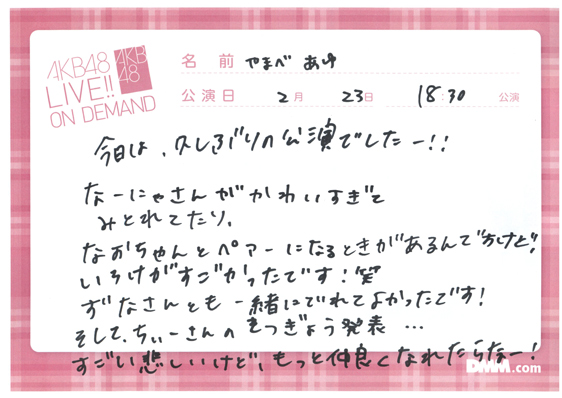 AKB48
LIVE!!
ON DEMAND
AKB
48
名前 やまべ あゆ
公演日 2月 23日 18:30 公演
今日は、久しぶりの公演でしたー!!
なーにゃさんがかわいすぎて
みとれてたり、
なおちゃんとペアーになるときがあるんですけど!
いろけがすごかったです!笑
ずなさんとも一緒にでれてよかったです!
そして、ちぃーさんのそつぎょう発表…
すごい悲しいけど、もっと仲良くなれたらなー!
DMM.com